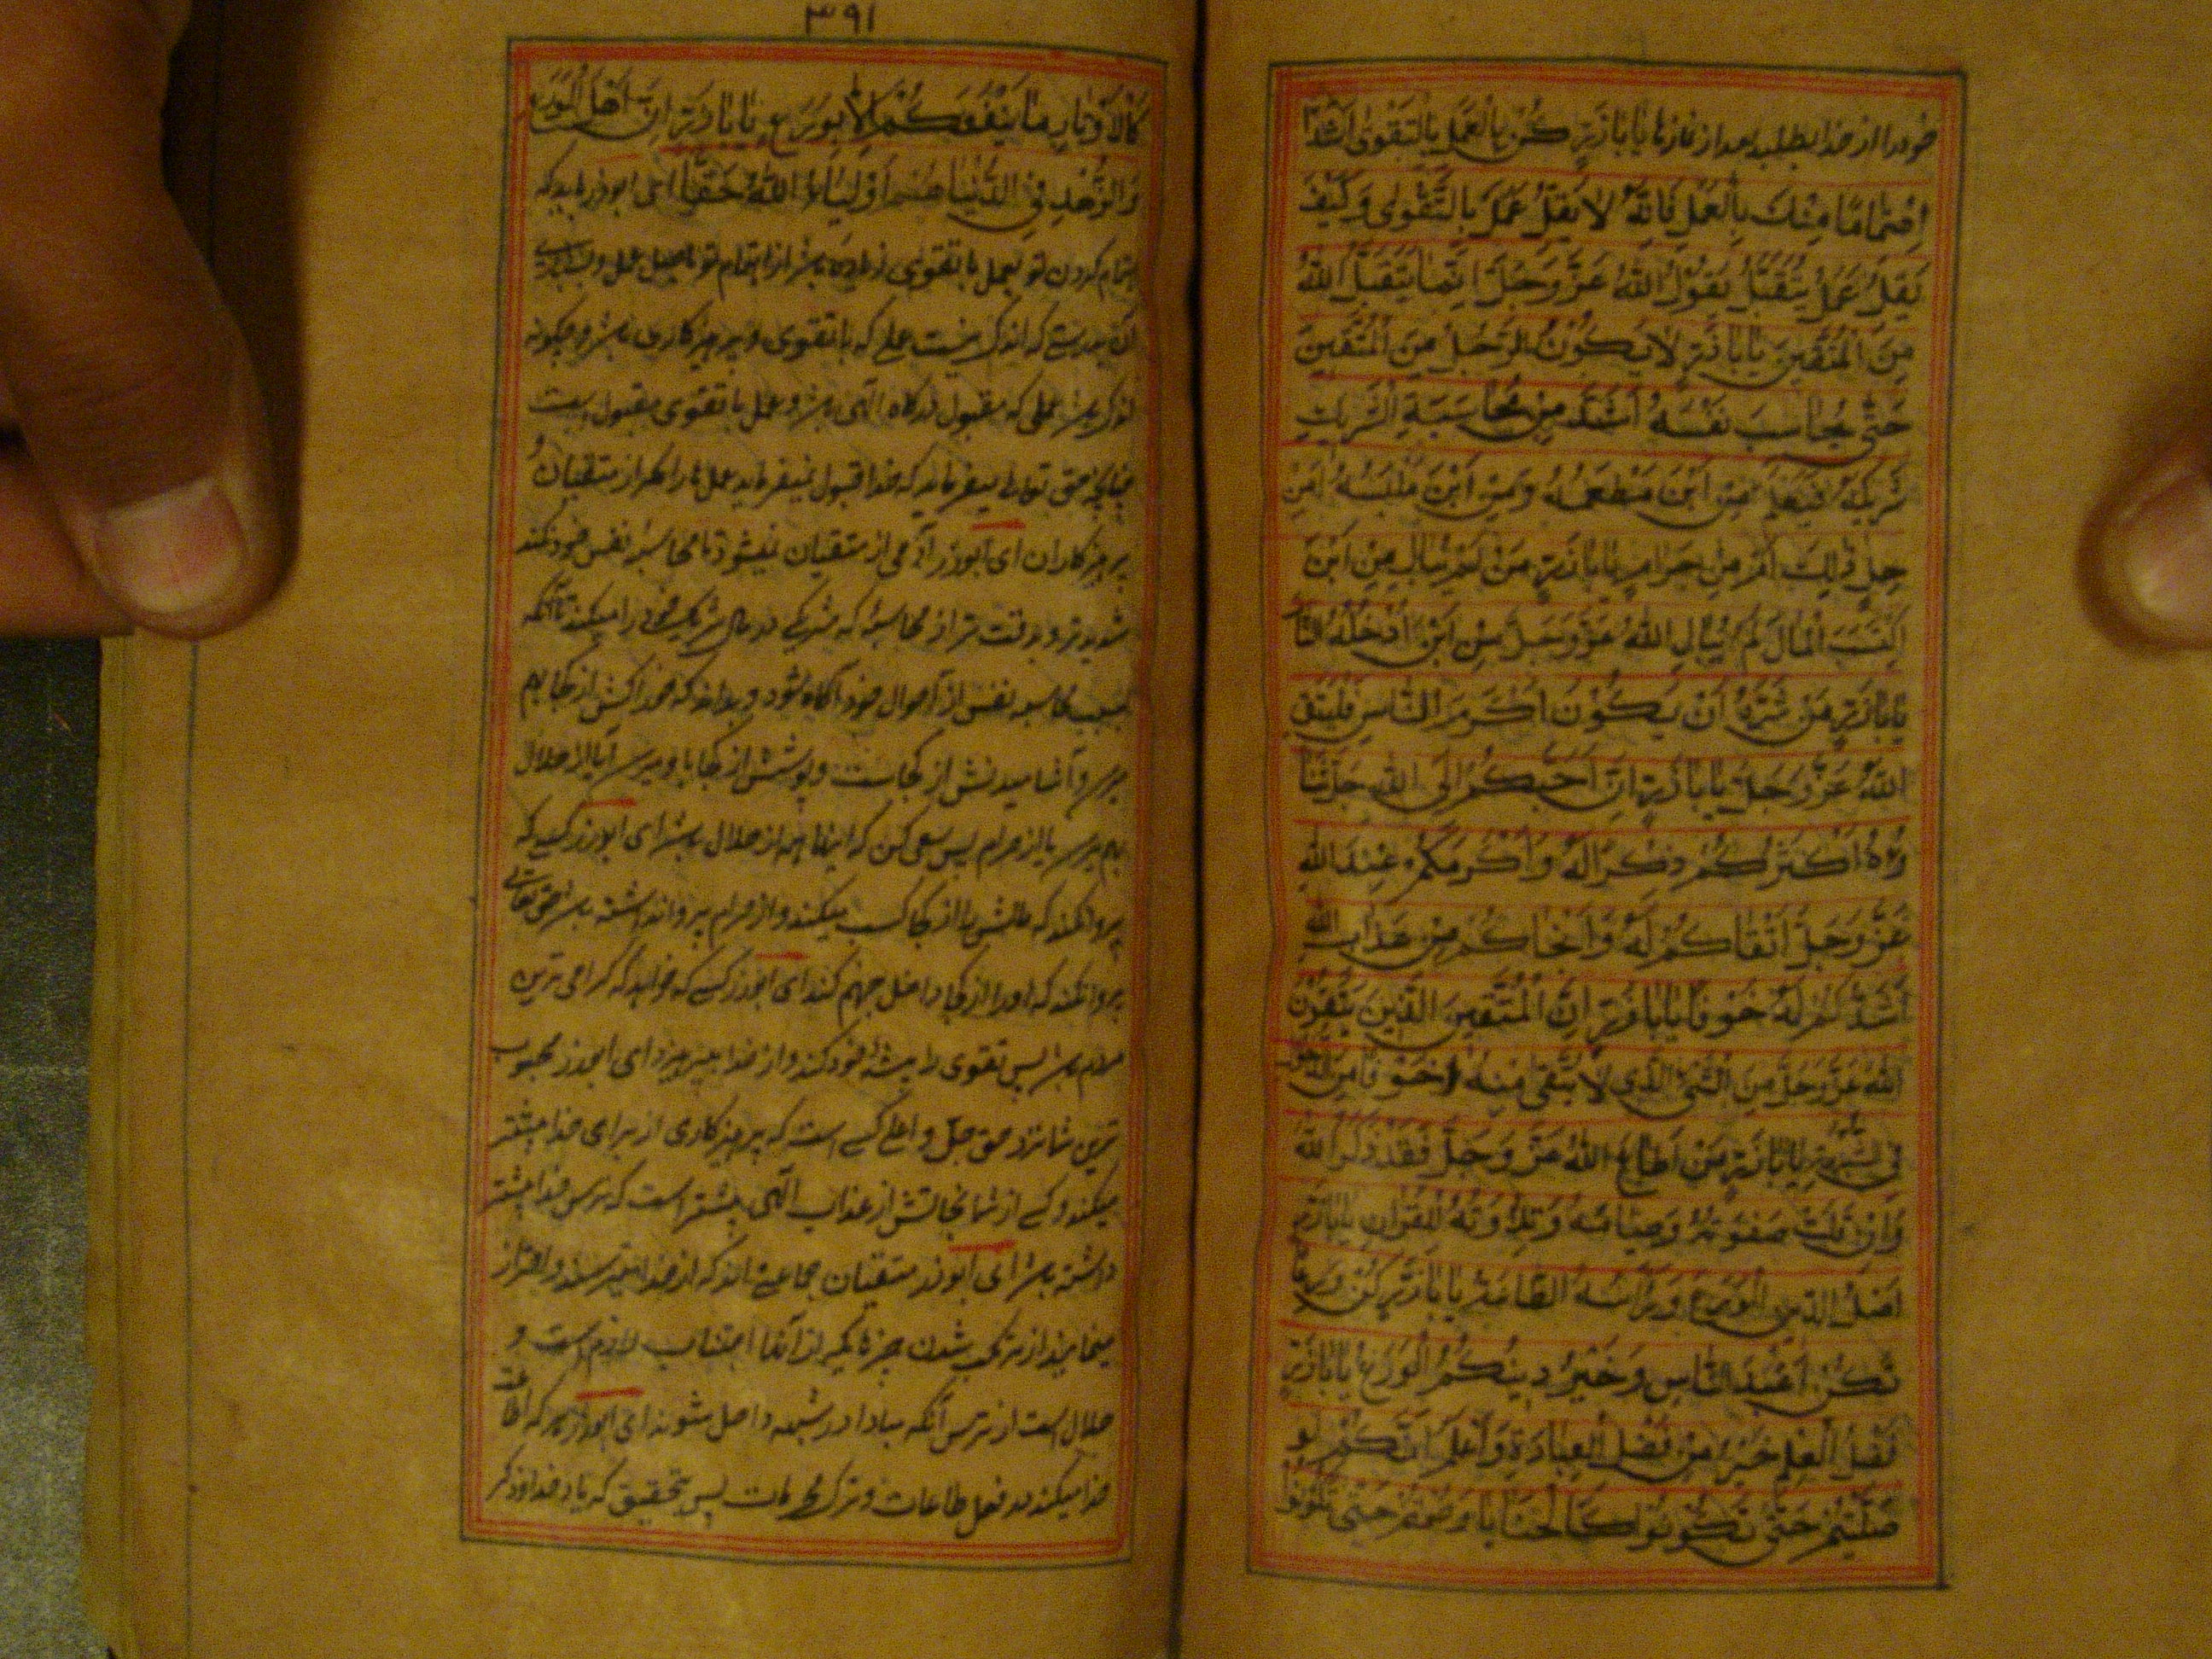 خودرا از خدا بطلبید بعد از نمازها یا باذر کن بالعمل بالتقوی اشد
اهتماما منك بالعمل فانه لا یقل عمل بالتقوی وکیف
یقل عمل یتقبل یقول الله عز وجل انما یتقبل الله
من المتقین یاباذر لا یکون الرجل من المتقین
حتی یحاسب نفسه اشد من محاسبة الشریك
شریکه فیعلم من این مطعمه ومن این ملبسه امن
حل ذلك ام من حرام یاباذر من لم یبال من این
اکتسب المال لم یبال الله عز وجل من این ادخله النار
یاباذر من سره ان یکون اکرم الناس فلیتق
الله عز وجل یاباذر ان احبکم الی الله جل ثنا
ؤه اکثرکم ذکرا له واکرمکم عند الله
عز وجل اتقاکم له وانجاکم من عذاب الله
اشدکم له خوفا یاباذر ان المتقین الذین یتقون
الله عز وجل من الشیء الذی لا یتقی منه خوفا من الدخول
فی الشبهة یاباذر من اطاع الله عز وجل فقد ذکر الله
وان قلت صلوته وصیامه وتلاوته للقران یاباذر
اصل الدین الورع وراسه الطاعة یاباذر کن ورعا
تکن اعبد الناس وخیر دینکم الورع یاباذر
فضل العلم خیر من فضل العبادة واعلم انکم لو
صلیتم حتی تکونوا کالحنایا وصمتم حتی تکونوا
٣٩١
کالاوتار ما ینفعکم الا بورع یاباذر ان اهل الورع
والزهد فی الدنیا هم اولیاء الله حقا ای ابوذر باید که
اهتمام کردن تو بعمل با تقوی زیاده باشد از اهتمام تو باصل عمل
بدرستی که اندک نیست عملی که با تقوی و پرهیزکاری باشد و چگونه
اندک باشد عملی که مقبول درگاه الهی باشد و عمل با تقوی مقبول است
چنانچه حق تعالی میفرماید که خدا قبول نمیفرماید عمل را مگر از متقیان و
پرهیزکاران ای ابوذر آدمی از متقیان نمیشود تا محاسبه نفس خود نکند
شدیدتر و بدقت تر از محاسبه که شریک در مال شریک خود را میکند تا آنکه
بسبب محاسبه نفس از احوال خود آگاه شود و بداند که خوراکش از کجا بهم
میرسد و آشامیدنش از کجاست و پوشش از کجا بهم میرسد آیا از حلال
بهم میرسد یا از حرام پس سعی کن که اینها همه از حلال باشد ای ابوذر کسی که
پروا نکند که مالش را از کجا کسب میکند و از حرام پروا نداشته باشد حق تعالی
پروا نکند که او را از کجا داخل جهنم کند ای ابوذر کسی که خواهد که گرامی ترین
مردم باشد پس تقوی را پیشه خود کند و از خدا بپرهیزد ای ابوذر محبوب
ترین شما نزد حق جل و اعلی کسی است که پرهیزکاری از برای خدا بیشتر
میکند و کسی از شما نجاتش از عذاب الهی بیشتر است که ترس خدا بیشتر
داشته باشد ای ابوذر متقیان جماعتی اند که از خدا میترسند و احتراز
مینمایند از مرتکب شدن چیزهای که از آنها اجتناب لازم است و
حلال است از ترس آنکه مبادا در شبهه داخل شوند ای ابوذر هر که اطاعت
خدا میکند در فعل طاعات و ترک محرمات پس بتحقیق که یاد خدا و ذکر